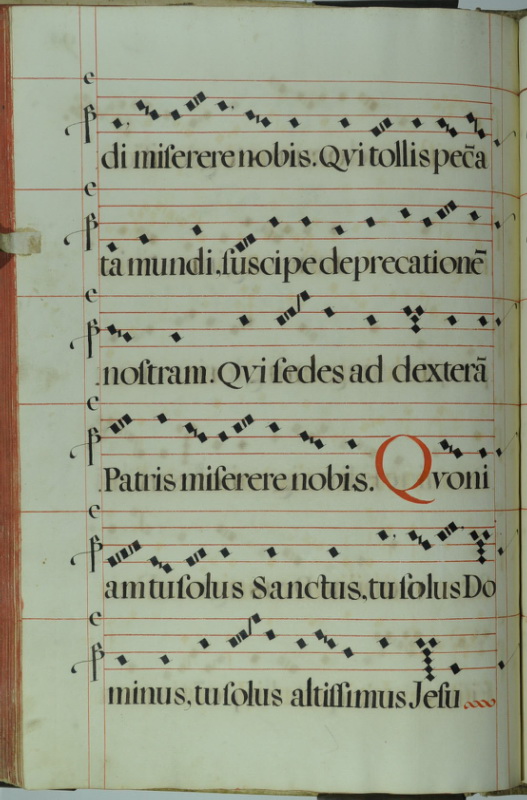 di miſerere nobis. Qvi tollis pec̄a
ta mundi, ſuscipe deprecationē
noſtram. Qvi ſedes ad dexterā
Patris miſerere nobis. Qvoni
am tu ſolus Sanctus, tu ſolus Do
minus, tu ſolus altiſſimus Jeſu